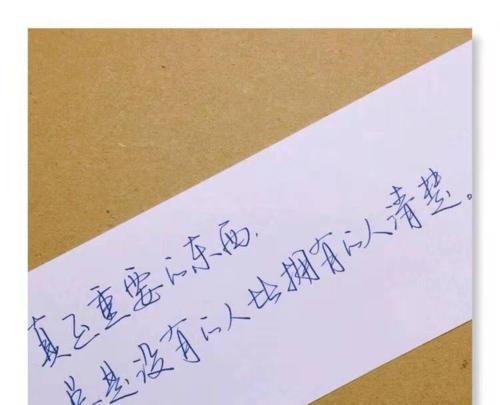 真正重要的东西，
总是没有的人比拥有的人清楚。